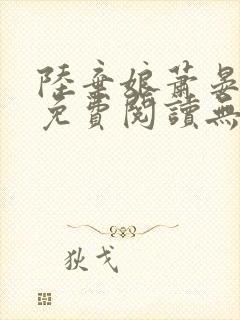 陸棄娘蕭晏
免費閱讀無
狄戈